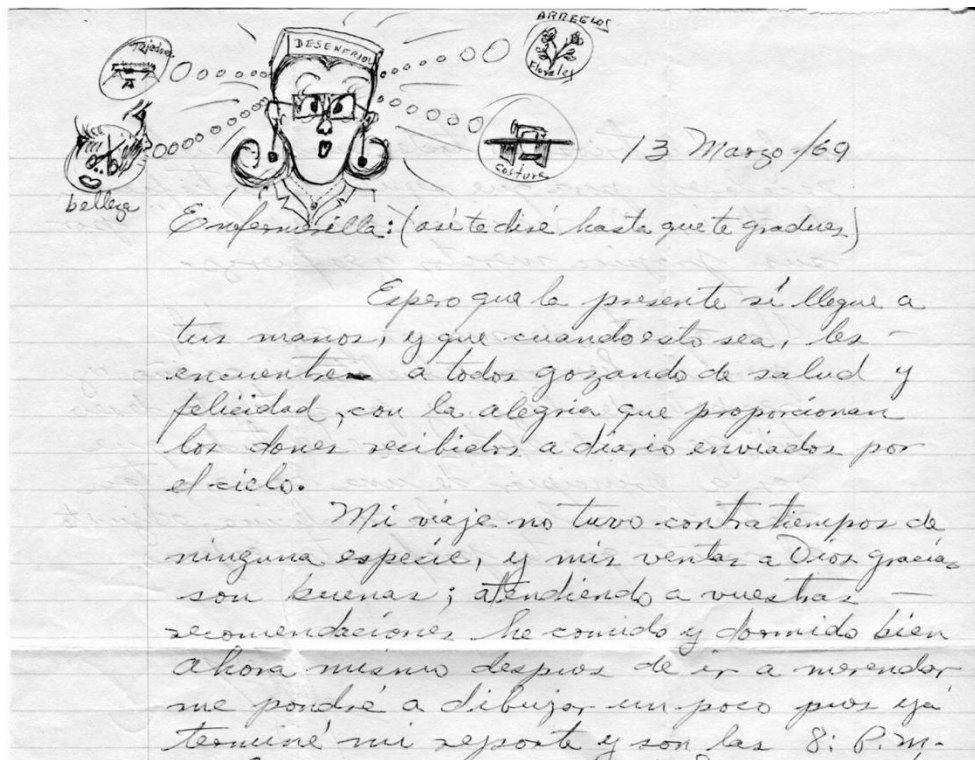 DESENFRIOL
Tejidos
belleza
ARREGLOS
Florales
costura
13 Marzo/69
Enfermerilla: (así te diré hasta que te gradues)
Espero que la presente sí llegue a
tus manos, y que cuando esto sea, les —
encuentre a todos gozando de salud y
felicidad, con la alegria que proporcionan
los dones recibidos a diario enviados por
el cielo.
Mi viaje no tuvo contratiempos de
ninguna especie, y mis ventas a Dios gracias
son buenas; atendiendo a vuestras —
recomendaciones he comido y dormido bien
ahora mismo despues de ir a merendar
me pondré a dibujar un poco pues yá
terminé mi reporte y son las 8: P.M.